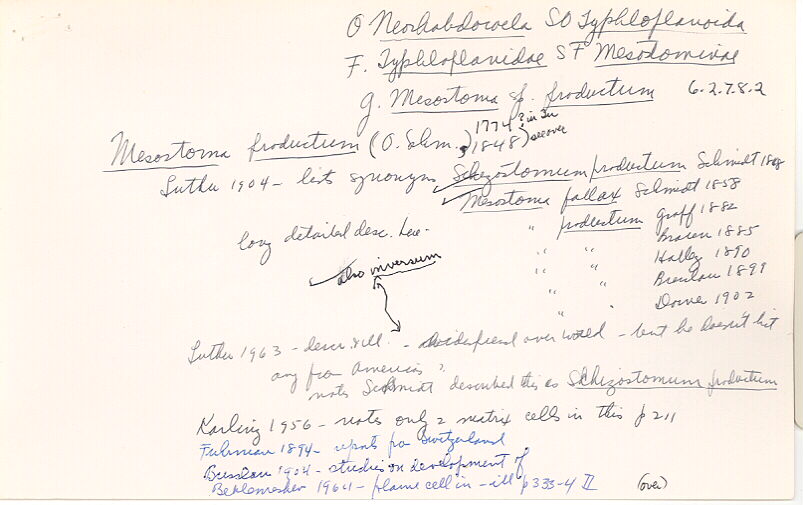 O Neorhabdocoela SO Typhloplanoida
F. Typhloplanidae SF Mesostominae
g. Mesostoma sp. productum 6.2.7.8.2
Mesostoma productum (O. Schm., 1848) 1774? in Lu see over
Luther 1904 - lists synonyms Schizostomum productum Schmidt 1848
Mesostoma fallax Schmidt 1858
" productum Graff 1882
long detailed desc. here.
" " Braun 1885
" " Hallez 1890
" " Bresslau 1899
" " Dorner 1902
also inversum
Luther 1963 - descr & ill. - widespread over world - but he doesn't list
any from Americas?
notes Schmidt described this as Schizostomum productum
Karling 1956 - notes only 2 matrix cells in this p 211
Fuhrman 1894 - reports for Switzerland
Bresslau 1904 - studies on development of
Beklemeshev 1964 - flame cell in - ill p 333-4 II (over)